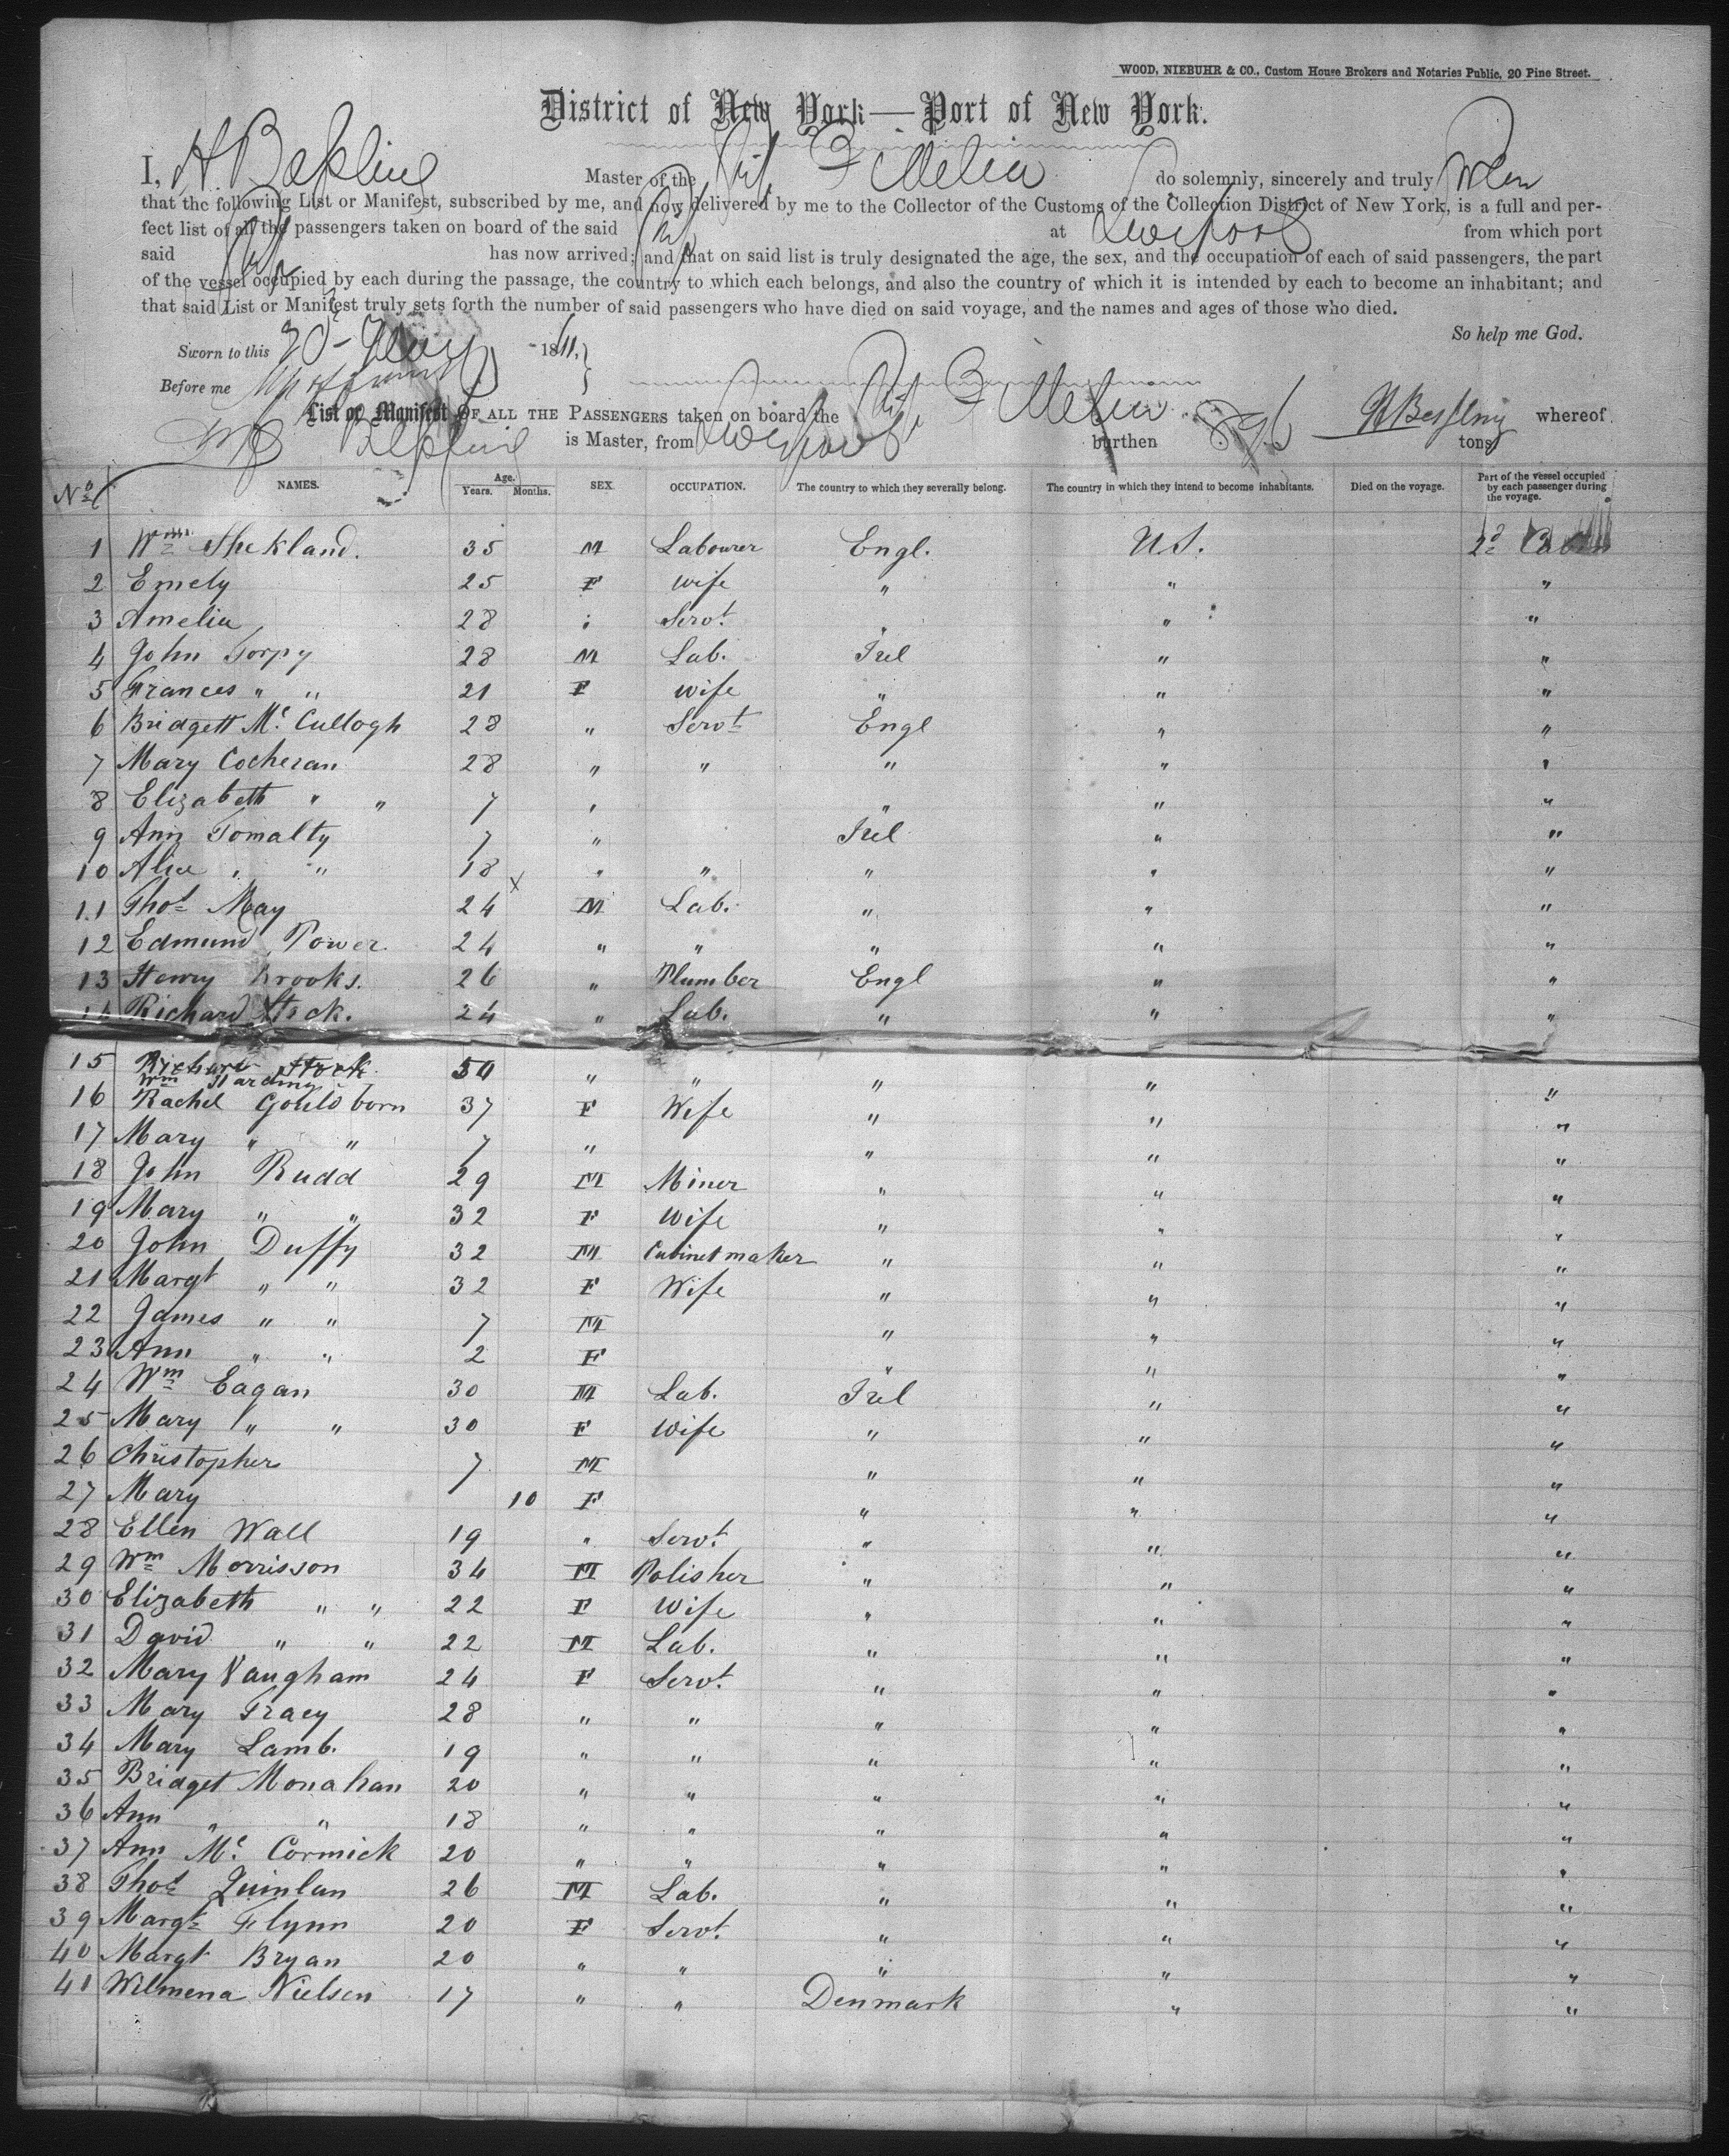 WOOD, NIEBUHR & CO., Custom House Brokers and Notaries Public, 20 Pine Street.
District of New York—Port of New York.
I, Master of the Ship do solemnly, sincerely and truly
that the following List or Manifest, subscribed by me, and now delivered by me to the Collector of the Customs of the Collection District of New York, is a full and per-
fect list of all the passengers taken on board of the said Ship at Liverpool from which port
said Ship has now arrived; and that on said list is truly designated the age, the sex, and the occupation of each of said passengers, the part
of the vessel occupied by each during the passage, the country to which each belongs, and also the country of which it is intended by each to become an inhabitant; and
that said List or Manifest truly sets forth the number of said passengers who have died on said voyage, and the names and ages of those who died.
So help me God.
Sworn to this 186
Before me
List or Manifest OF ALL THE PASSENGERS taken on board the Ship whereof
is Master, from Liverpool burthen 896 tons
No NAMES. Age. Years. Months. SEX. OCCUPATION. The country to which they severally belong. The country in which they intend to become inhabitants. Died on the voyage. Part of the vessel occupied by each passenger during the voyage.
1 Wm Shekland. 35 M Labourer Engl. U.S. 2d
2 Emely 25 F wife " " "
3 Amelia 28 " Servt. " " "
4 John Torpy 28 M Lab. Irel " "
5 Frances " " 21 F wife " " "
6 Bridgett Mc Cullogh 28 " Servt Engl " "
7 Mary Cocheran 28 " " " " "
8 Elizabeth " " 7 " " " "
9 Ann Tomalty 7 " Irel " "
10 Alice " " 18 " " " " "
11 Thos May 24 x M Lab. " " "
12 Edmund Power 24 " " " " "
13 Henry Brooks. 26 " Plumber Engl " "
14 Richard Steck. 24 " Lab. " " "
15 Richard Stock Wm Harding 30 " " " " "
16 Rachel Gouldborn 37 F Wife " " "
17 Mary " " 7 " " " "
18 John Rudd 29 M Miner " " "
19 Mary " " 32 F wife " " "
20 John Duffy 32 M Cabinetmaker " " "
21 Margt " " 32 F Wife " " "
22 James " " 7 M " " "
23 Ann " " 2 F " " "
24 Wm Eagan 30 M Lab. Irel " "
25 Mary " " 30 F wife " " "
26 Christopher 7 M " " "
27 Mary 10 F " " "
28 Ellen Wall 19 " Servt. " " "
29 Wm Morrisson 34 M Polisher " " "
30 Elizabeth " " 22 F wife " " "
31 David " " 22 M Lab. " " "
32 Mary Vaugham 24 F Servt. " " "
33 Mary Tracy 28 " " " " "
34 Mary Lamb. 19 " " " " "
35 Bridget Monahan 20 " " " " "
36 Ann " " 18 " " " " "
37 Ann Mc Cormick 20 " " " " "
38 Thos Quinlan 26 M Lab. " " "
39 Margt Flynn 20 F Servt. " " "
40 Margt Bryan 20 " " " " "
41 Wilmena Nielsen 17 " " Denmark " "